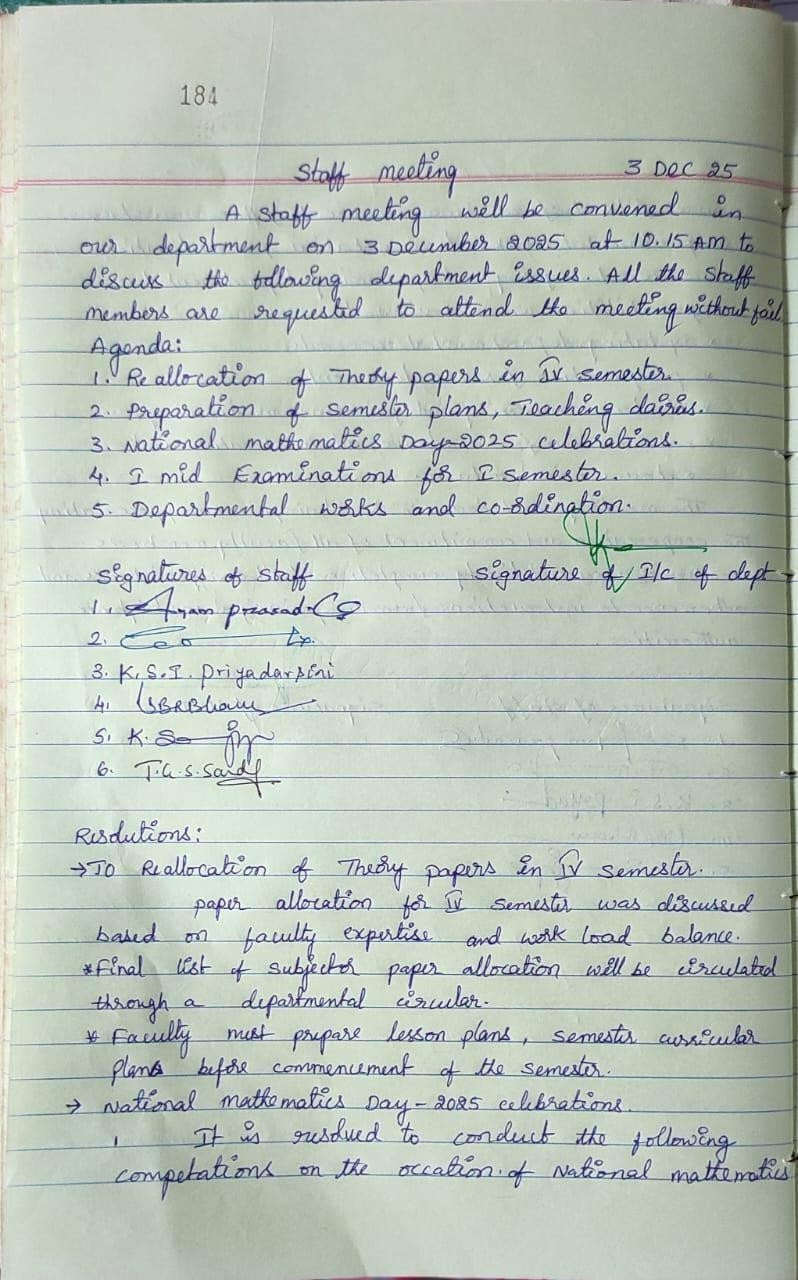 184
Staff meeting 3 Dec 25
A staff meeting will be convened in
our department on 3 December 2025 at 10.15 AM to
discuss the following department issues. All the staff
members are requested to attend the meeting without fail.
Agenda:
1. Re allocation of Theory papers in IV semester.
2. Preparation of semester plans, Teaching dairies.
3. National mathematics Day-2025 celebrations.
4. I mid Examinations for I semester.
5. Departmental works and co-ordination.
Signatures of staff Signature of I/c of dept
1. prasad
2.
3. K.S.I. Priyadarsini
4.
5. K.
6. T.G.S.
Resolutions:
→To Reallocation of Theory papers in IV semester.
paper allocation for IV semester was discussed
based on faculty expertise and work load balance.
*Final list of subject or paper allocation will be circulated
through a departmental circular.
* Faculty must prepare lesson plans, semester curricular
plans before commencement of the semester.
→ National mathematics Day-2025 celebrations.
It is resolved to conduct the following
competations on the occation of National mathematics